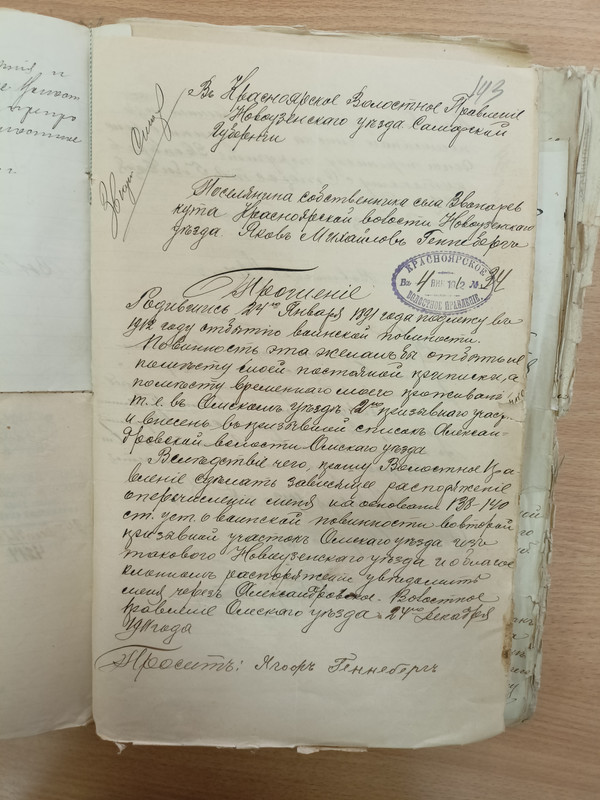 143
Въ Красноярское Волостное Правление
Новоузенскаго уѣзда Самарский
Губернги
Поселянина собственника села Звонарев
кута Красноярской вовости Новоузенскаго
уѣзда Яковъ Михайловъ Геннебергъ
КРАСНОЯРСКОЕ
4 ЯНВ 1912 № 24
ВОЛОСТНОЕ ПРАВЛЕНІЕ
Прошеніе
Родившись 24го Января 1891 года подлежу въ
1912 году отбытію воинской повинности.
Повинность эта желалъ бы отбыть не
помѣсту моей постоянной приписки, а
помѣсту временнаго моего проживанія
т.е. въ Омскомъ уѣздѣ 2го призывнаго участ.
и внесенъ въ призывной списокъ Алексан-
дровской волости Омскаго уѣзда
Вслѣдствіе чего, прошу Волостное Пра
вленіе сдѣлать зависящее распоряженіе
о перечислении меня на основани 138-140
ст. уст. о воинской повинности во второй
призывной участокъ Омскаго уѣзда изъ
такового Новоузенскаго уѣзда и о благое
распоряжении увѣдомить
меня чрезъ Александровское Волостное
правление Омскаго уѣзда. 24го Декабря
1911 года
Проситъ: Ягоръ Геннебергъ